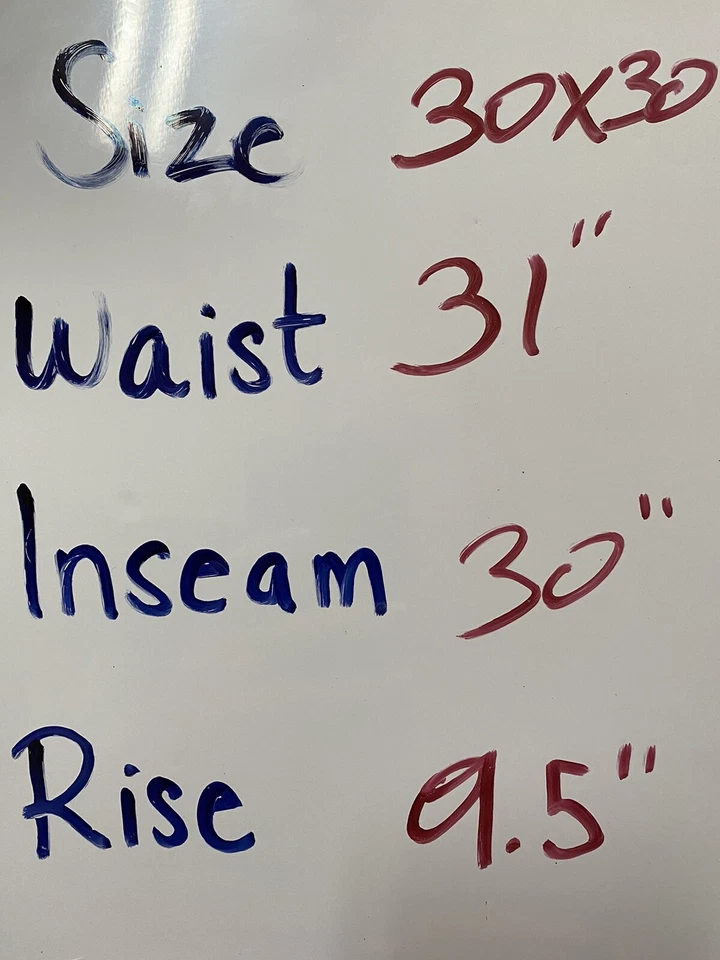 Size 30x30
Waist 31"
Inseam 30"
Rise 9.5"